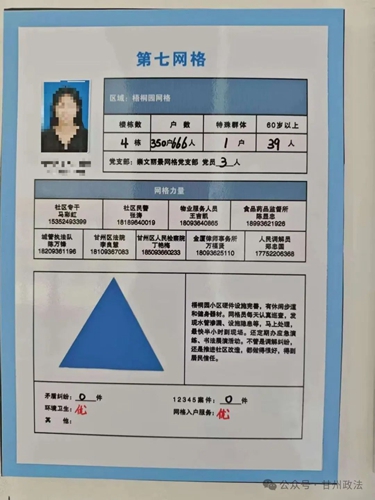 第七网格
区域：梧桐园网格
楼栋数 户数 特殊群体 60岁以上
4栋 350户666人 1户 39人
党支部：翰文丽景网格党支部 党员3人
网格力量
社区专干 社区民警 物业服务人员 食品药品监督所
马彩虹 张涛 王吉凯 陈昱忠
18352493399 18189640019 18093640865 18993621928
城管执法队 甘州区法院 甘州区人民检察院 金厦律师事务所 人民调解员
陈万锋 李良慧 丁艳梅 万禧贤 郑志国
18209361196 18109367083 185093660233 18093625110 17752206368
梧桐园小区硬件设施完善，有休闲步道
和健身器材。网格员每天认真巡查，发
现水管渗漏、设施隐患等，马上处理，
最快半小时到现场。还定期办应急演
练、书法展演活动。不管是调解纠纷，
还是推进社区改造，都做得很好，得到
居民信任。
矛盾纠纷：0件 12345案件：0件
环境卫生：优 网格入户服务：优
其 他：
公众号·甘州政法